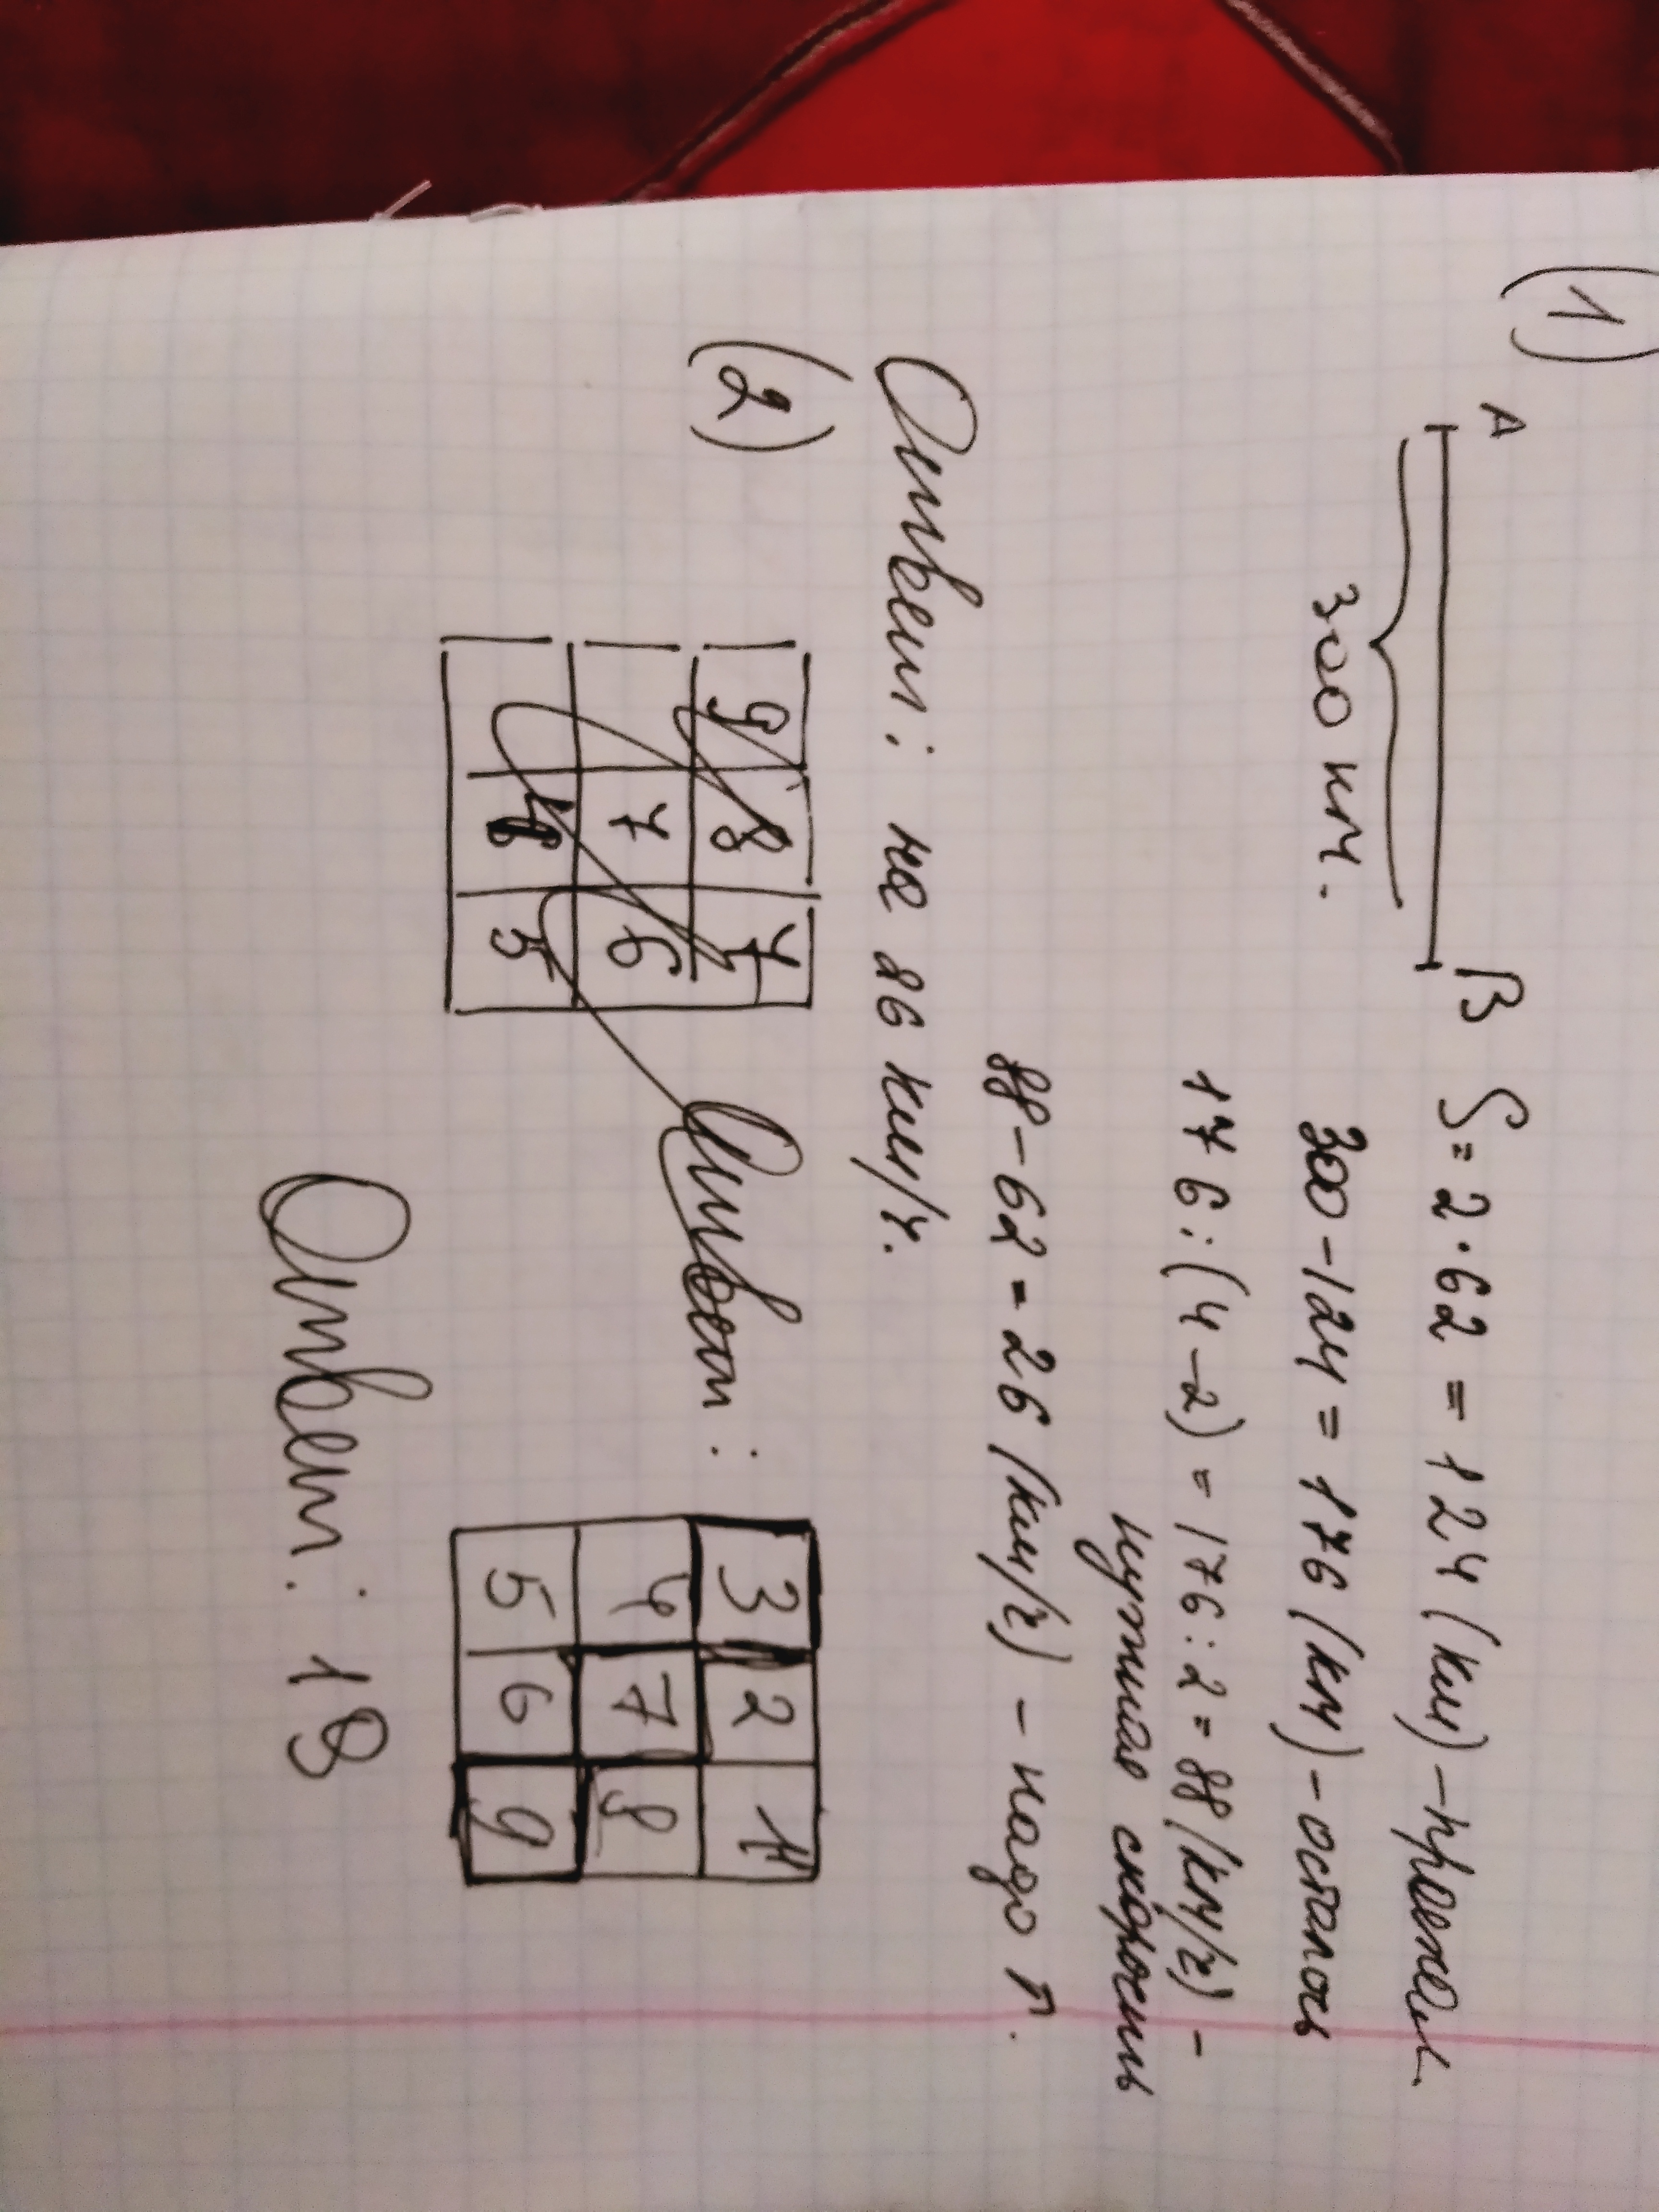 (1)
A B
300 км.
S = 2 · 62 = 124 (км) - проехал.
300 - 124 = 176 (км) - осталось
176 : (4 - 2) = 176 : 2 = 88 (км/ч) -
нужная скорость
88 - 62 = 26 (км/ч) - надо п.
Ответ: на 26 км/ч.
(2)
9 8 4
7 6
5
Ответ:
3 2 1
4 7 8
5 6 9
Ответ: 19